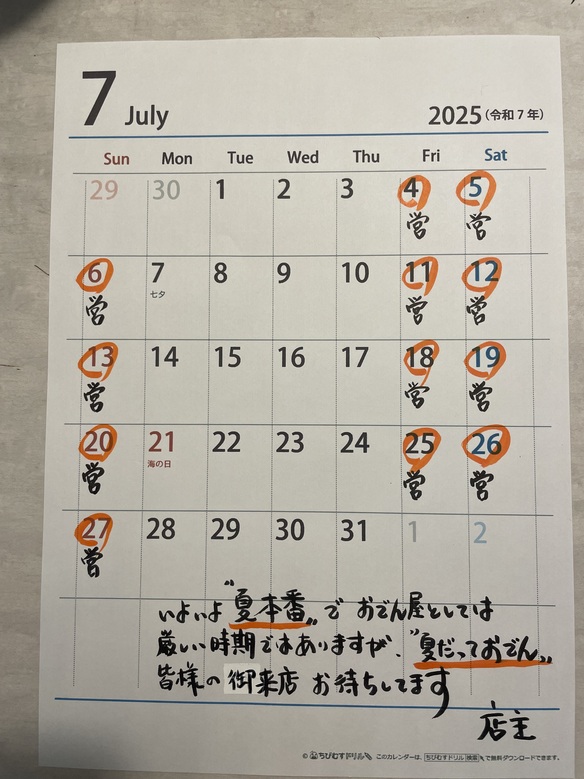 7 July
2025(令和7年)
Sun Mon Tue Wed Thu Fri Sat
29 30 1 2 3 4 5
営 営
6 7 8 9 10 11 12
七夕
営 営 営
13 14 15 16 17 18 19
営 営 営
20 21 22 23 24 25 26
海の日
営 営 営
27 28 29 30 31 1 2
営
いよいよ"夏本番„で おでん屋としては
厳しい時期ではありますが、"夏だっておでん„
皆様の御来店 お待ちしてます
店主
© ちびむすドリル このカレンダーは、ちびむすドリル 検索 で無料ダウンロードできます。